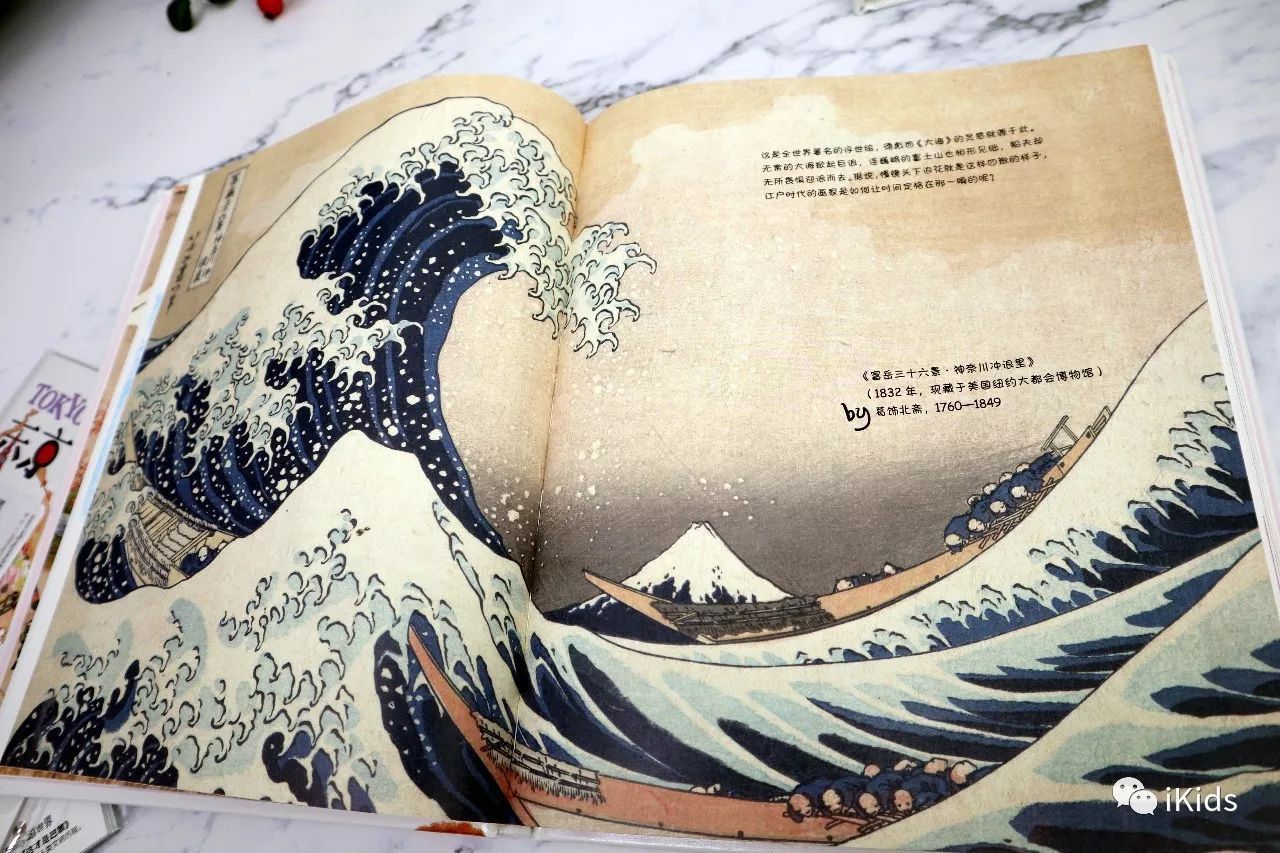 这是全世界著名的浮世绘，德彪西《大海》的灵感就源于此。
无常的大海掀起巨浪，连巍峨的富士山也相形见绌，船夫却
无所畏惧迎浪而去。据说，慢镜头下浪花就是这样四散的样子，
江户时代的画家是如何让时间定格在那一瞬的呢？
《富岳三十六景·神奈川冲浪里》
（1832 年，现藏于美国纽约大都会博物馆）
by 葛饰北斋，1760—1849
TOKYO
iKids